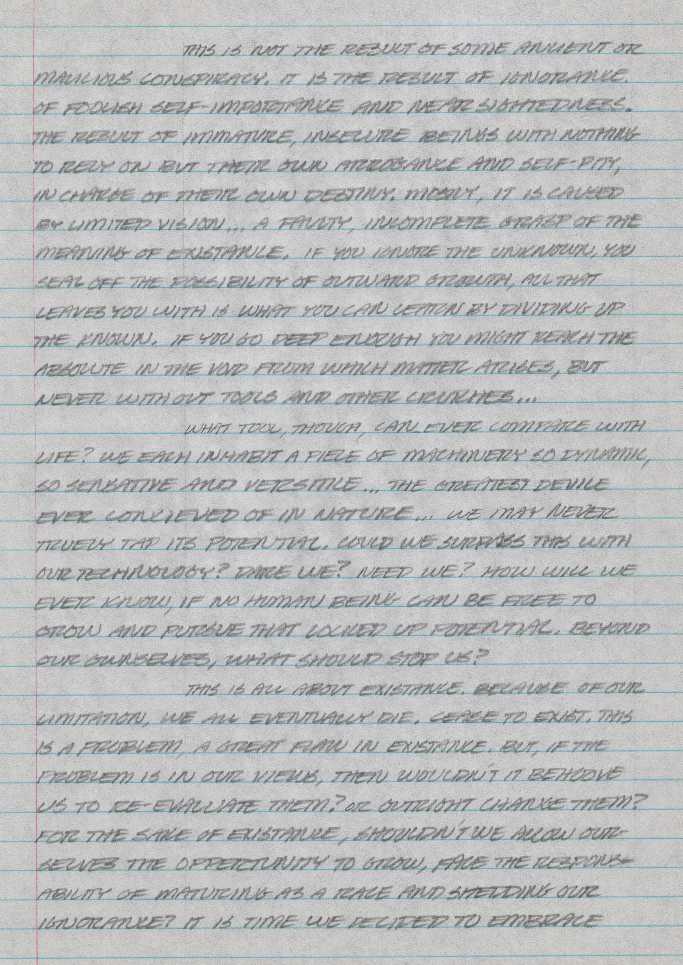 THIS IS NOT THE RESULT OF SOME ANCIENT OR
MALICIOUS CONSPIRACY. IT IS THE RESULT OF IGNORANCE.
OF FOOLISH SELF-IMPORTANCE AND NEAR SIGHTEDNESS.
THE RESULT OF IMMATURE, INSECURE BEINGS WITH NOTHING
TO RELY ON BUT THEIR OWN ARROGANCE AND SELF-PITY,
IN CHARGE OF THEIR OWN DESTINY. MOSTLY, IT IS CAUSED
BY LIMITED VISION... A FAULTY, INCOMPLETE GRASP OF THE
MEANING OF EXISTANCE. IF YOU IGNORE THE UNKNOWN, YOU
SEAL OFF THE POSSIBILITY OF OUTWARD GROWTH, ALL THAT
LEAVES YOU WITH IS WHAT YOU CAN LEARN BY DIVIDING UP
THE KNOWN. IF YOU GO DEEP ENOUGH YOU MIGHT REACH THE
ABSOLUTE IN THE VOID FROM WHICH MATTER ARISES, BUT
NEVER WITHOUT TOOLS AND OTHER CRUNCHES...
WHAT TOOL, THOUGH, CAN EVER COMPARE WITH
LIFE? WE EACH INHABIT A PIECE OF MACHINERY SO DYNAMIC,
SO SENSATIVE AND VERSITILE... THE GREATEST DEVICE
EVER CONCIEVED OF IN NATURE... WE MAY NEVER
TRUELY TAP ITS POTENTIAL. COULD WE SURPASS THIS WITH
OUR TECHNOLOGY? DARE WE? NEED WE? HOW WILL WE
EVER KNOW, IF NO HUMAN BEING CAN BE FREE TO
GROW AND PURSUE THAT LOCKED UP POTENTIAL. BEYOND
OUR OWNSELVES, WHAT SHOULD STOP US?
THIS IS ALL ABOUT EXISTANCE. BECAUSE OF OUR
LIMITATION, WE ALL EVENTUALLY DIE. CEASE TO EXIST. THIS
IS A PROBLEM, A GREAT FLAW IN EXISTANCE. BUT, IF THE
PROBLEM IS IN OUR VIEWS, THEN WOULDN'T IT BEHOOVE
US TO RE-EVALUATE THEM? OR OUTRIGHT CHANGE THEM?
FOR THE SAKE OF EXISTANCE, SHOULDN'T WE ALLOW OUR-
SELVES THE OPPERTUNITY TO GROW, FACE THE RESPONS-
ABILITY OF MATURING AS A RACE AND SHEDDING OUR
IGNORANCE? IT IS TIME WE DECIDED TO EMBRACE